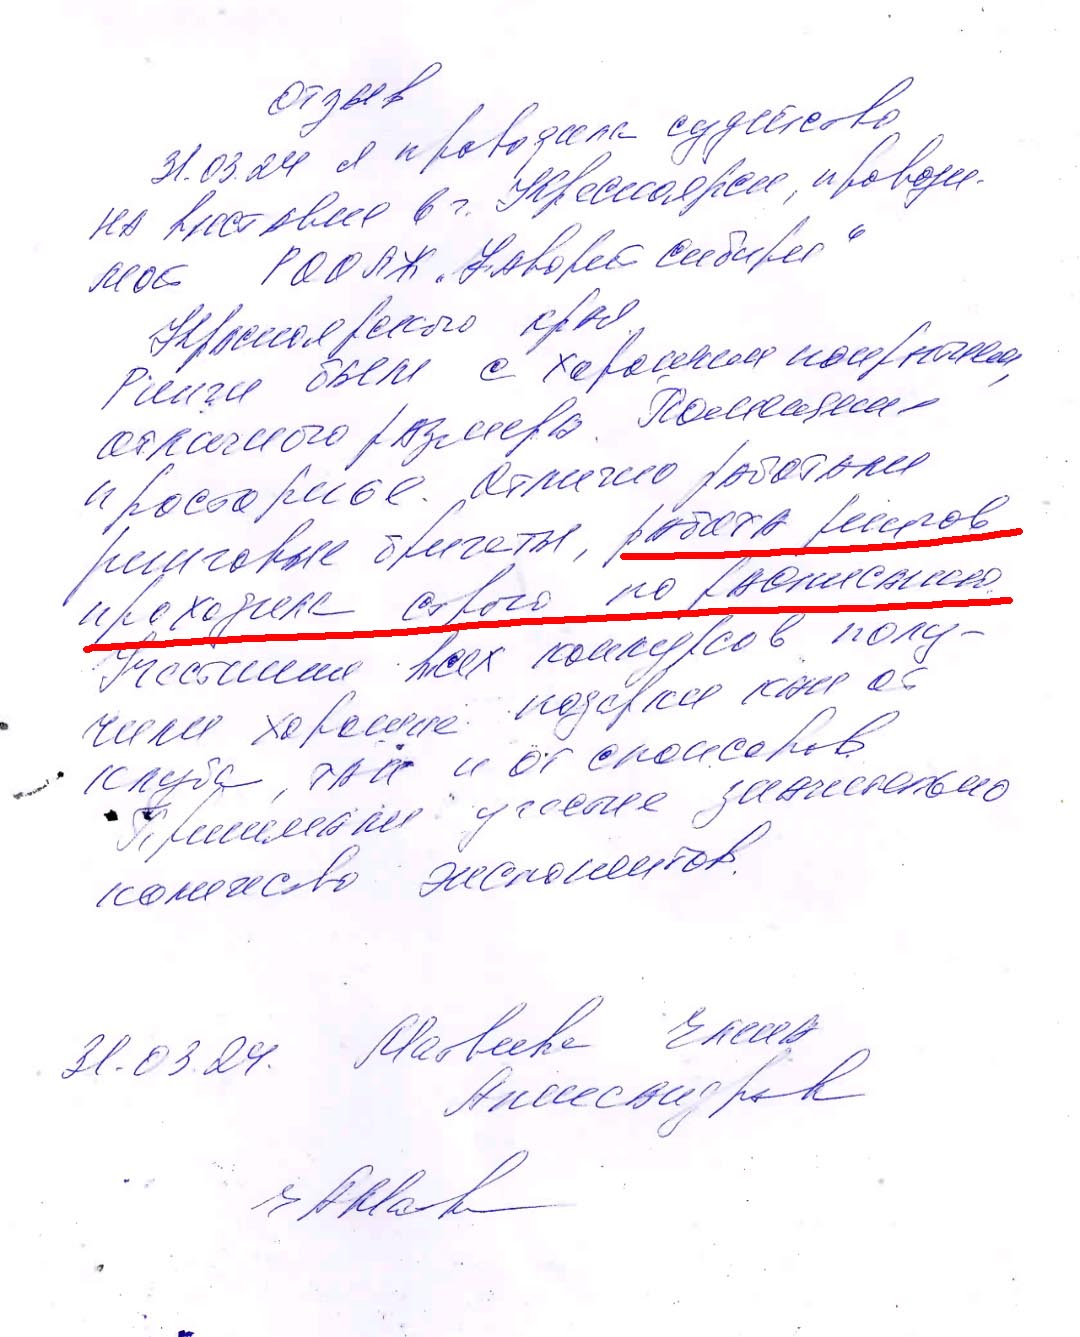 Отзыв
31.03.24 я проводила судейство
на выставке в г. Красноярске, проводи-
мой РООЛЖ "Фаворит Сибири"
Красноярского края.
Ринги были с хорошим покрытием,
отличного размера. Помещение
просторное. Отлично работали
ринговые бригады, работа рингов
проходила строго по расписанию.
Участники всех конкурсов полу-
чили хорошие подарки как от
клуба, так и от спонсоров.
Принимали участие значительно
количество экспонентов.
31.03.24. Елена
Александров